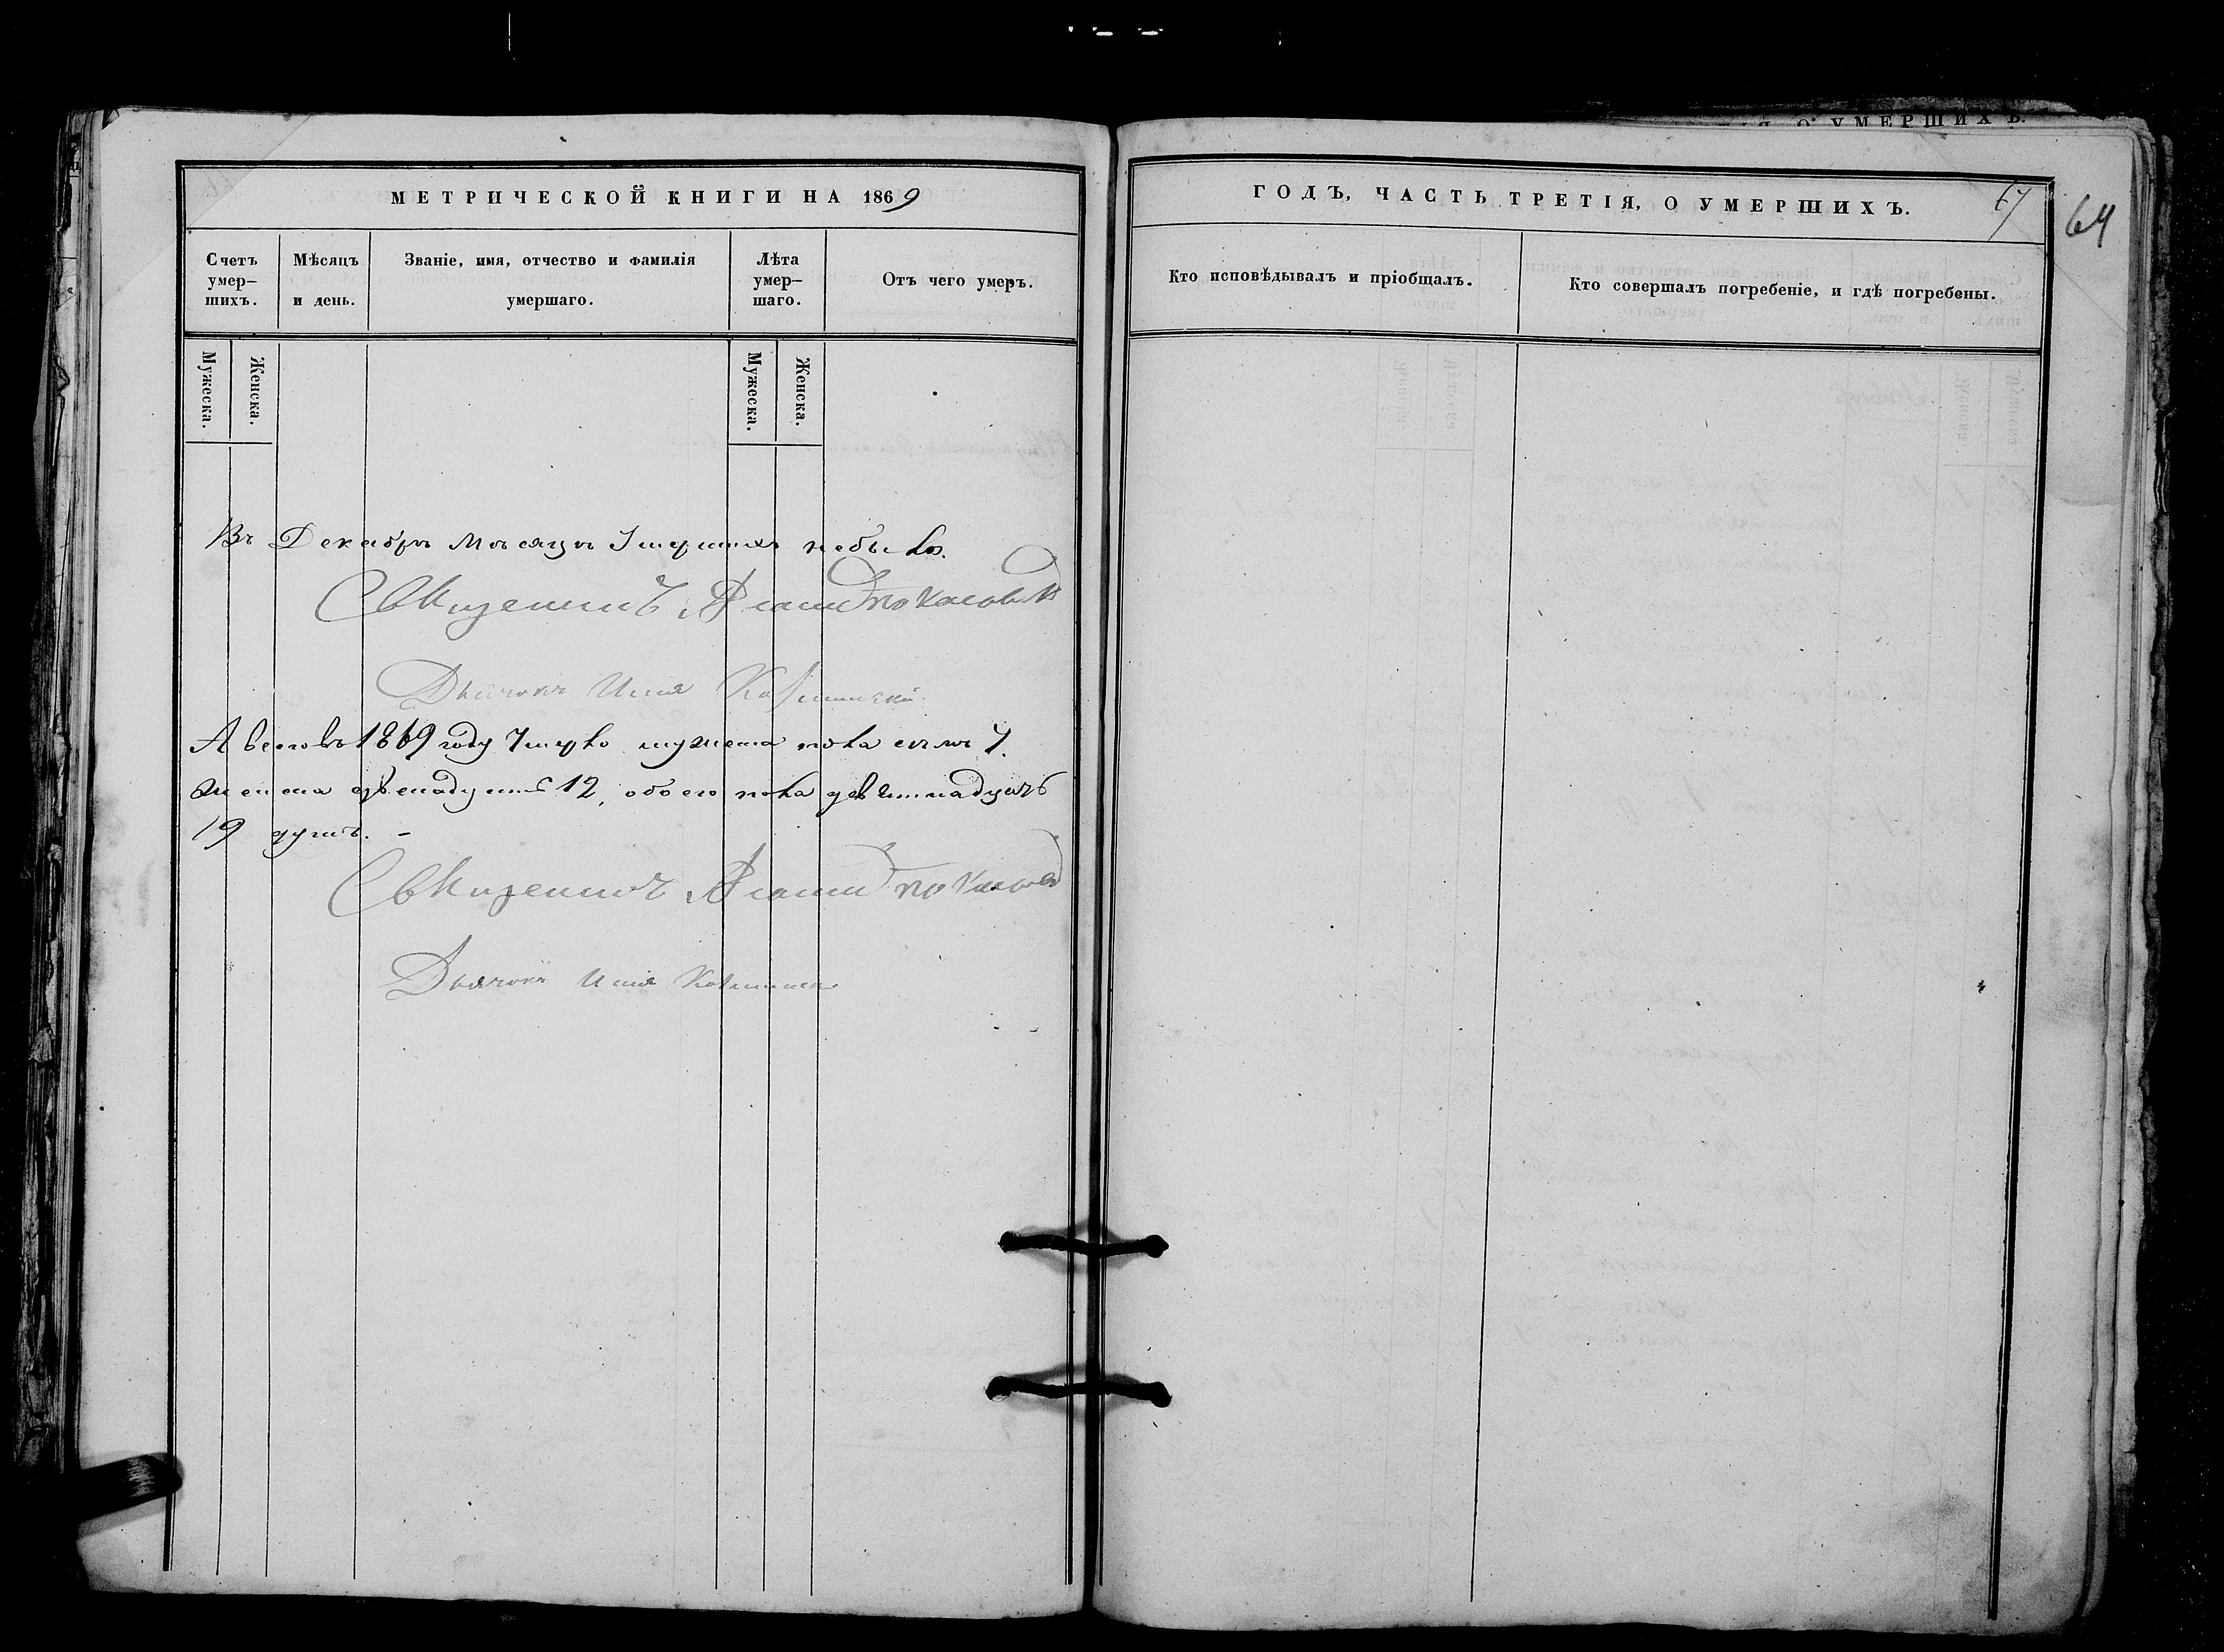 О УМЕРШИХЪ.
МЕТРИЧЕСКОЙ КНИГИ НА 1869
Счетъ умер-шихъ.
Мѣсяцъ и день.
Званіе, имя, отчество и фамилія умершаго.
Лѣта умер-шаго.
Отъ чего умеръ.
Мужеска.
Женска.
Мужеска.
Женска.
Въ Декабрѣ Мѣсяцѣ Умершихъ небыло.
Священникъ
Дьячокъ Илья
А всего въ 1869 году Умерло мужеска пола семь 7.
женска двенадцать 12, обоего пола девятнадцать
19 душъ. -
Священникъ
Дьячокъ Илья
ГОДЪ, ЧАСТЬ ТРЕТІЯ, О УМЕРШИХЪ.
67
64
Кто исповѣдывалъ и пріобщалъ.
Кто совершалъ погребеніе, и гдѣ погребены.